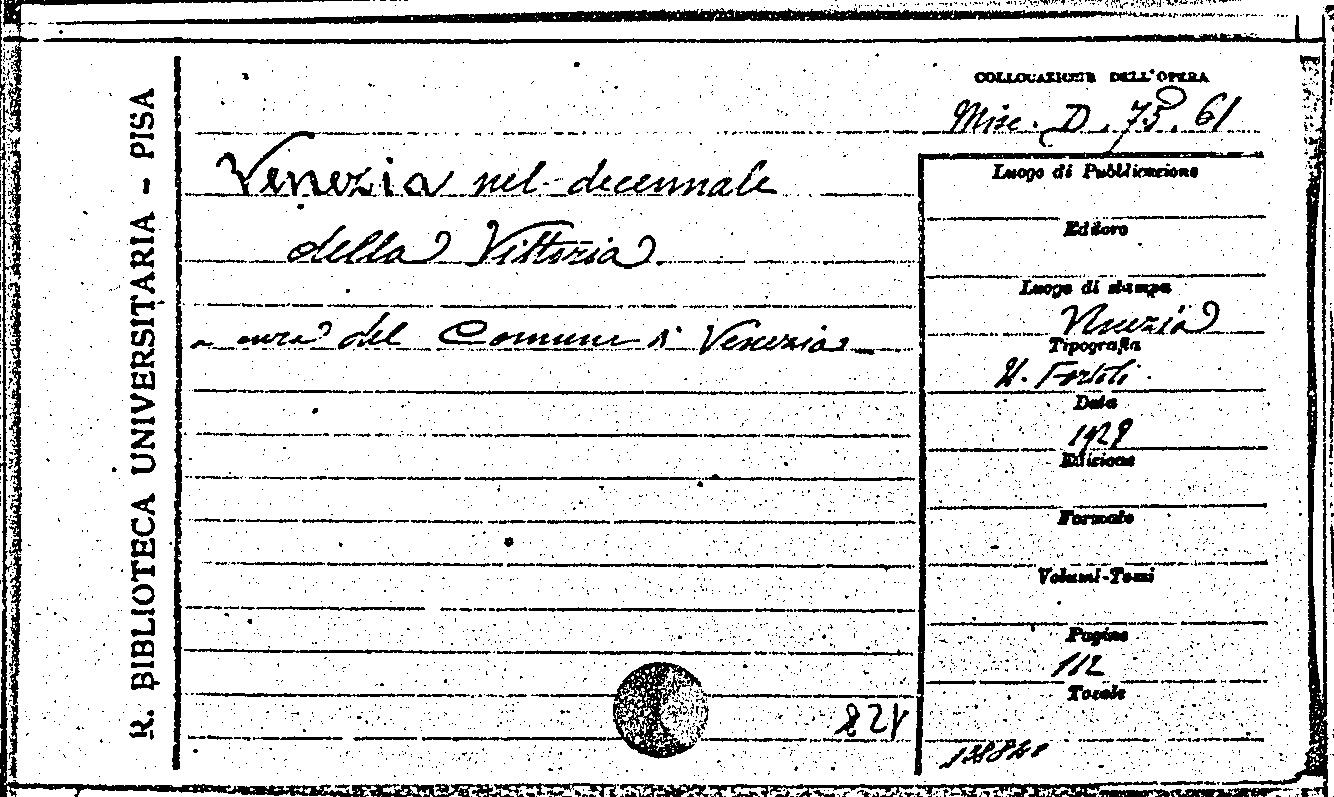 COLLOCAZIONE DELL'OPERA
Misc. D. 75. 61
R. BIBLIOTECA UNIVERSITARIA - PISA
Venezia nel decennale
della Vittoria.
a cura del Comune di Venezia
Luogo di Pubblicazione
Editore
Luogo di stampa
Venezia
Tipografia
Data
1929
Edizione
Formato
Volumi-Tomi
Pagine
112
Tavole